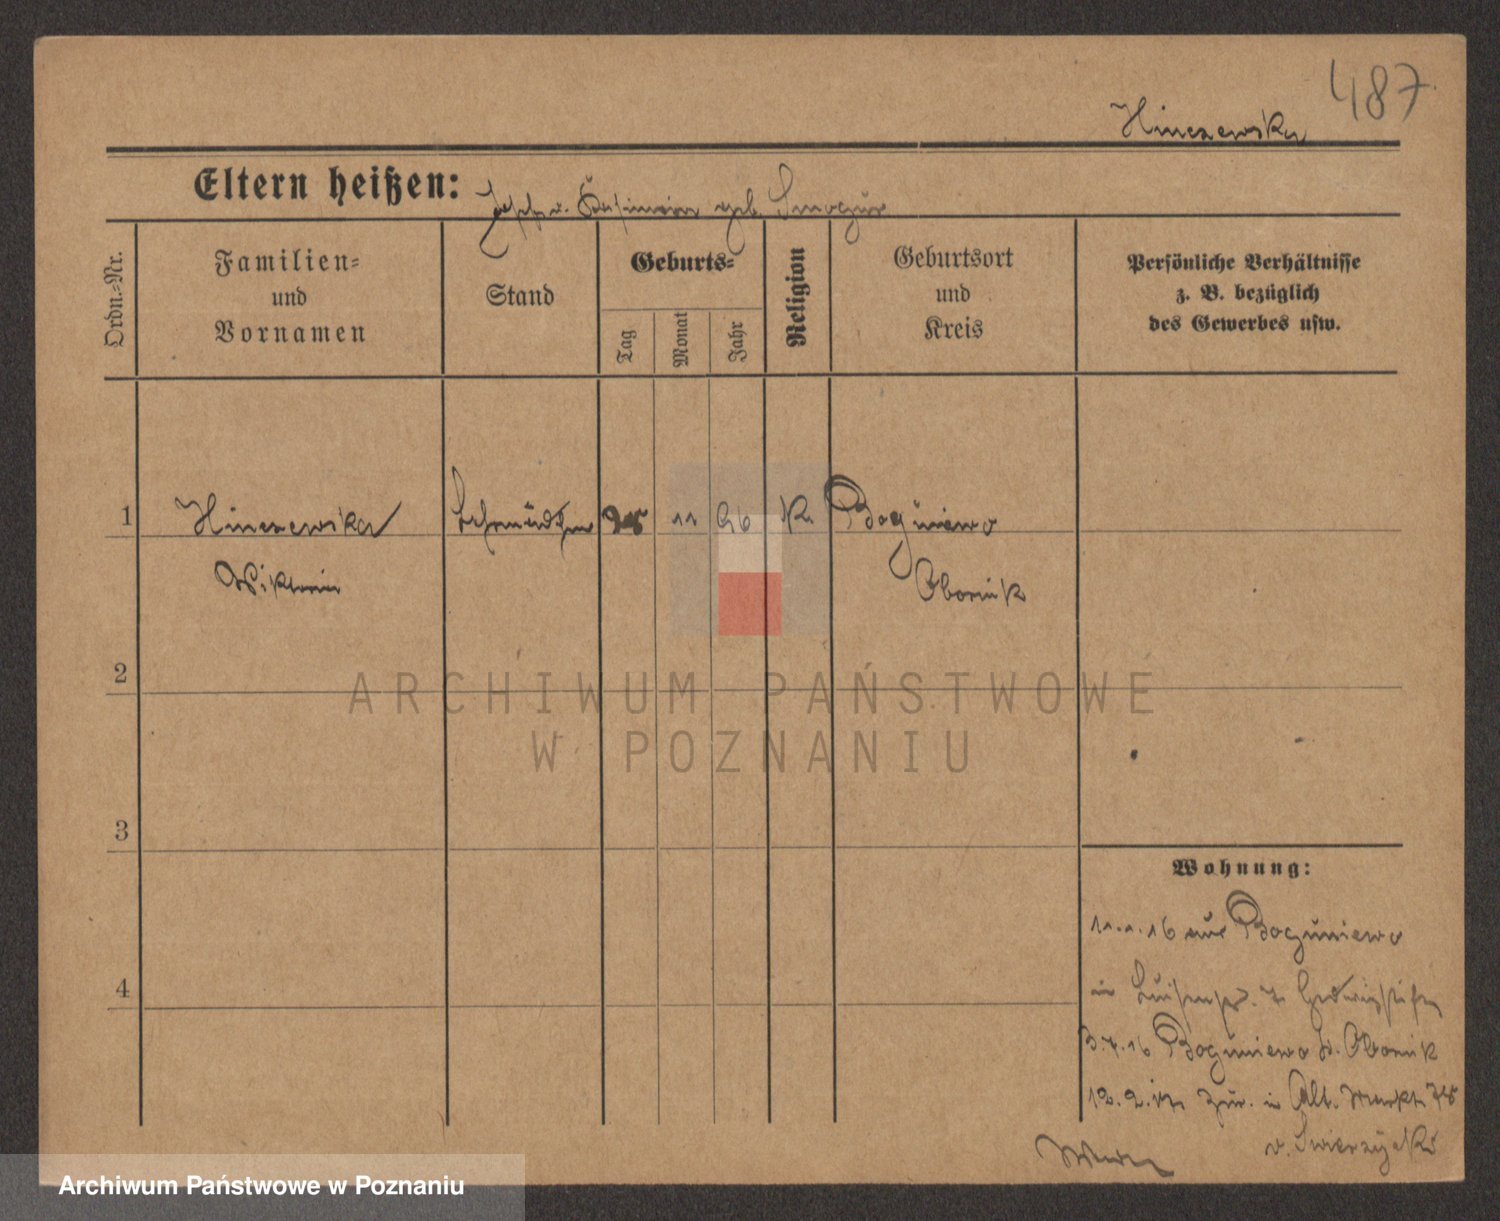 487
Hinczewska
Eltern heißen: Joseph u. Kasimira geb. Smogur
Ordn.-Nr.
Familien-
und
Vornamen
Stand
Geburts-
Tag
Monat
Jahr
Religion
Geburtsort
und
Kreis
Persönliche Verhältnisse
z. B. bezüglich
des Gewerbes usw.
1 Hinczewska 11 96 K. Boguniewo
Wiktoria Obornik
2
ARCHIWUM PAŃSTWOWE
W POZNANIU
3
Wohnung:
11.1.16 aus Boguniewo
in 7
4
3.7.16 Boguniewo Kr. Obornik
12.2.17 zur. in Alt. Markt
v. Swierzyński
Archiwum Państwowe w Poznaniu